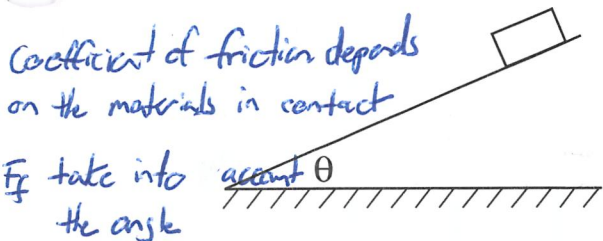 Coefficient of friction depends
on the materials in contact
Ff take into account θ
the angle